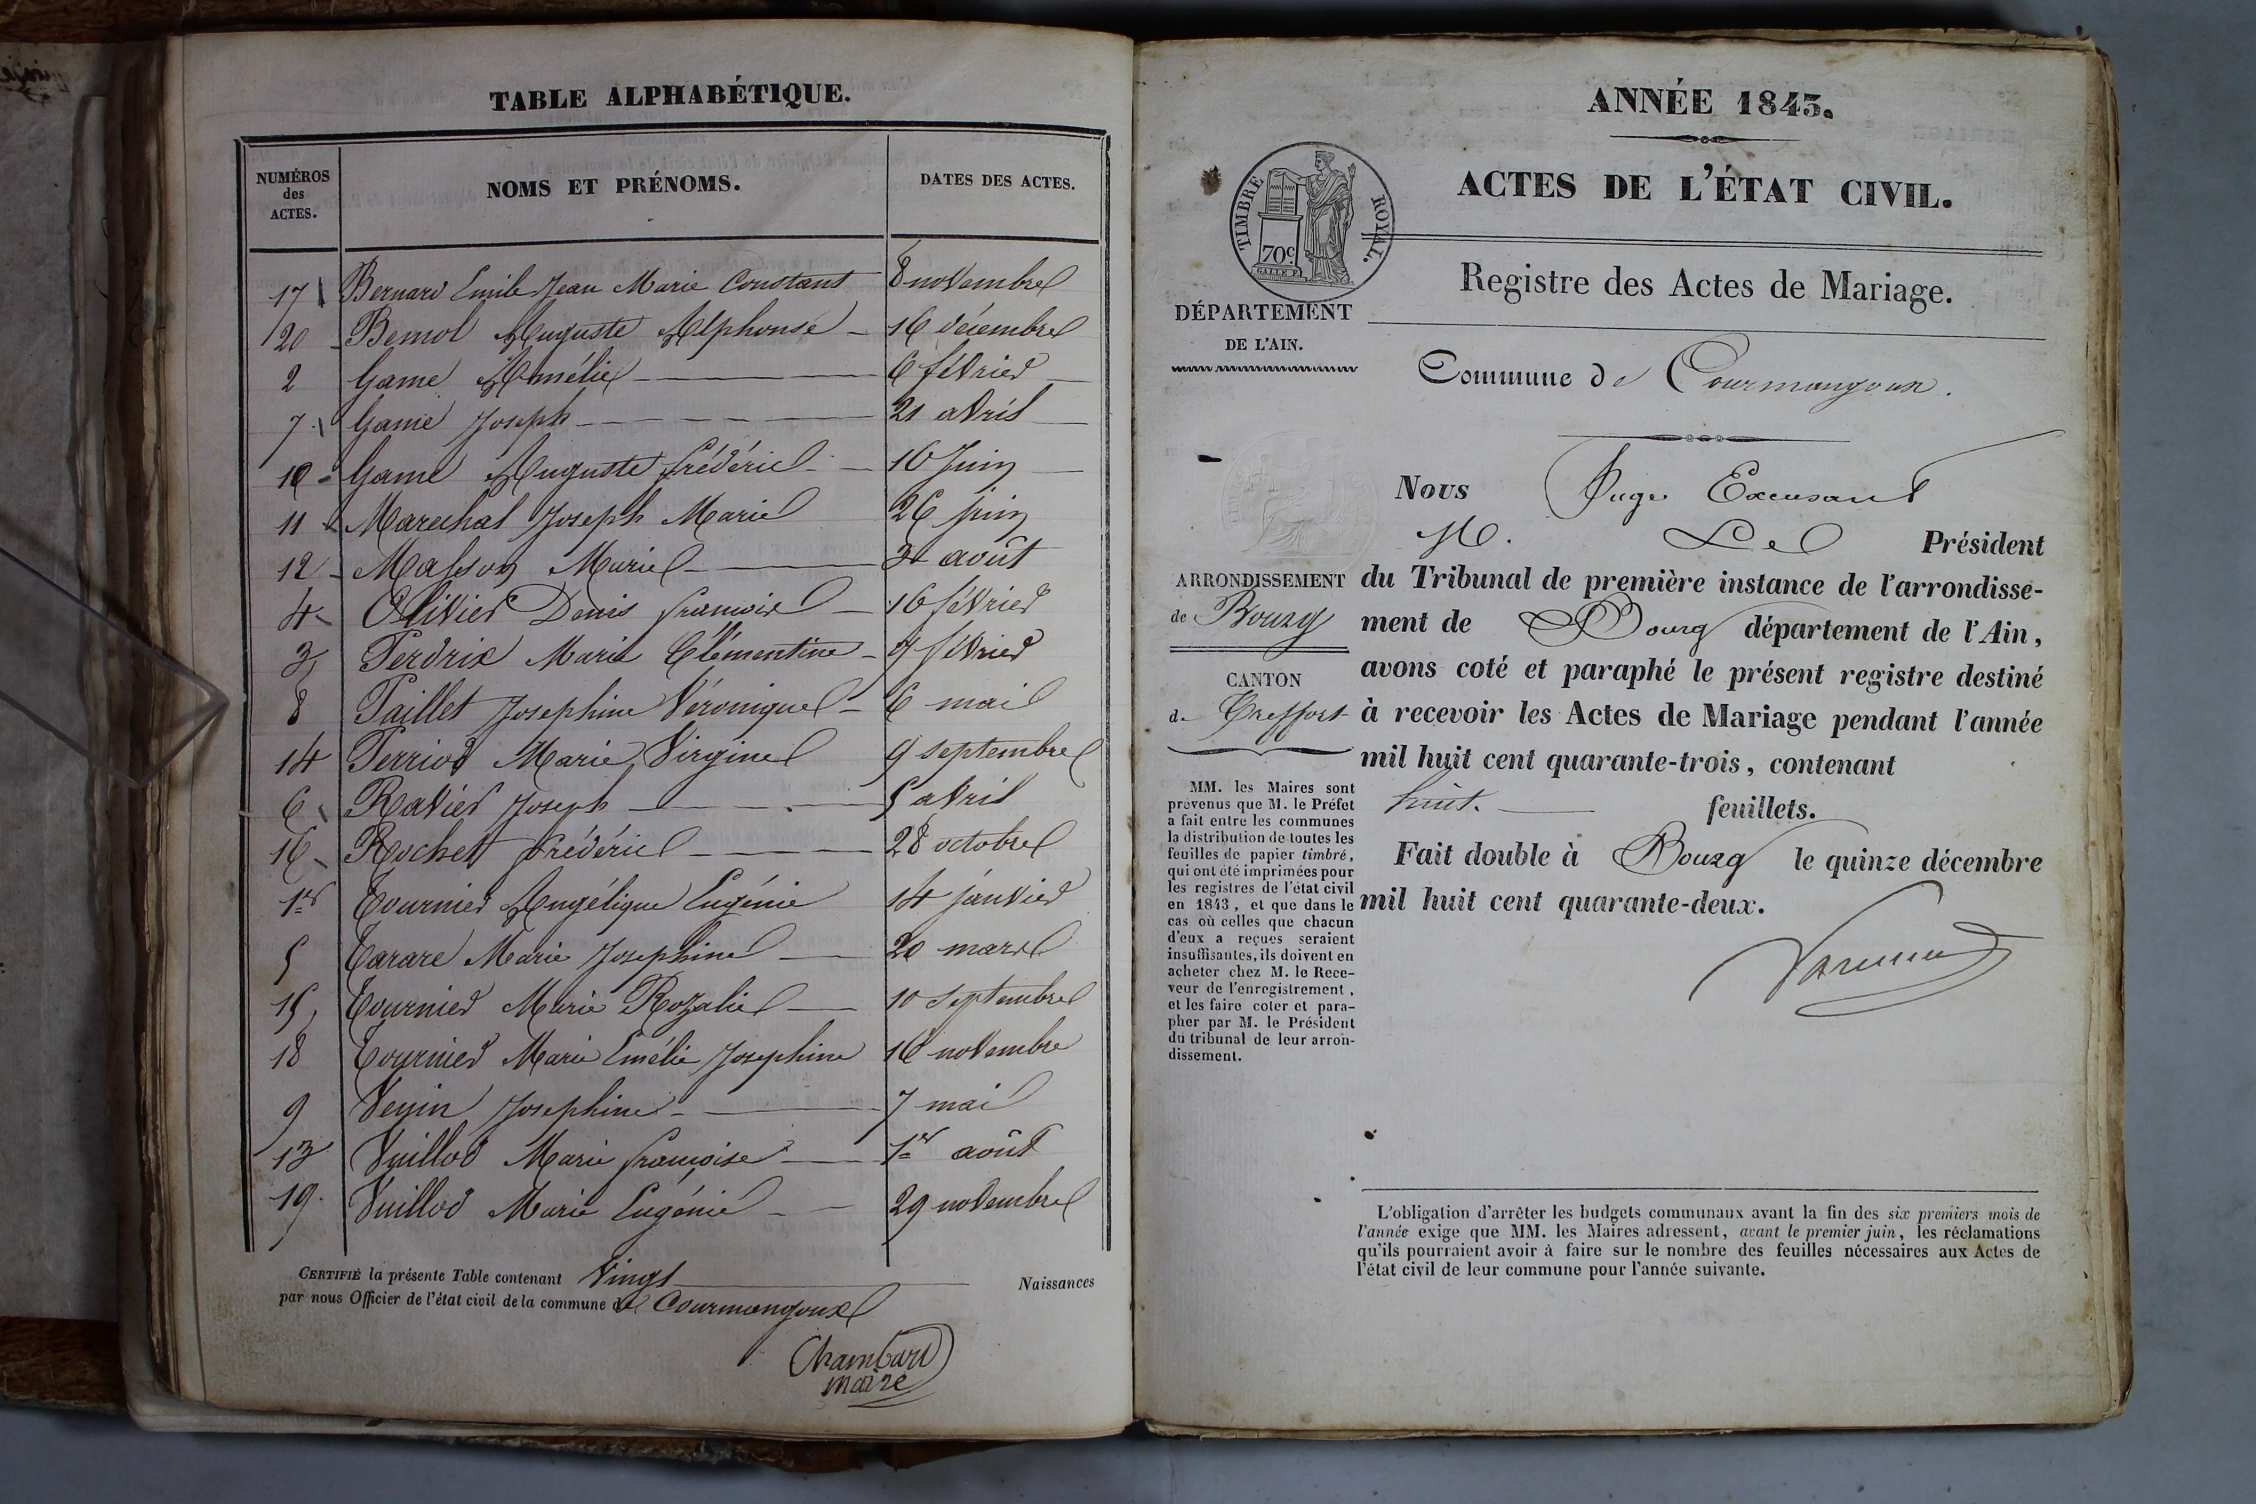 TABLE ALPHABÉTIQUE.
NUMÉROS des ACTES. NOMS ET PRÉNOMS. DATES DES ACTES.
17 Bernard Emile Jean Marie Constant 8 novembre
20 Bemol Auguste Alphonse 16 décembre
2 Game Amélie 6 février
7 Game Joseph 21 avril
10 Game Auguste frédéric 16 Juin
11 Marechal Joseph Marie 26 juin
12 Masson Marie août
4 Olivier Denis francois 16 février
3 Perdrix Marie Clémentine 9 février
8 Paillet Josephine Véronique 6 mai
14 Perriod Marie Virgine 9 septembre
6 Ravier Joseph 5 avril
16 Rochet frédéric 28 octobre
1er Tournier Angélique Eugénie 14 janvier
5 Tarare Marie Josephine 20 mars
15 Tournier Marie Rozalie 10 septembre
18 Tournier Marie Emélie Josephine 16 novembre
9 Veyin Josephine 7 mai
13 Vuillod Marie francoise 1er août
19 Vuillod Marie Eugénie 29 novembre
CERTIFIÉ la présente Table contenant Vingt Naissances
par nous Officier de l'état civil de la commune de Courmangoux
Chambard
maire
ANNÉE 1843.
ACTES DE L'ÉTAT CIVIL.
TIMBRE ROYAL.
70c.
Registre des Actes de Mariage.
DÉPARTEMENT
DE L'AIN.
Commune de Courmangoux.
Nous Juge Excusant
M. Le Président
du Tribunal de première instance de l'arrondisse-
ment de Bourg département de l'Ain,
avons coté et paraphé le présent registre destiné
à recevoir les Actes de Mariage pendant l'année
mil huit cent quarante-trois, contenant
huit. feuillets.
Fait double à Bourg le quinze décembre
mil huit cent quarante-deux.
ARRONDISSEMENT
de Bourg
CANTON
de Treffort
MM. les Maires sont
prévenus que M. le Préfet
a fait entre les communes
la distribution de toutes les
feuilles de papier timbré,
qui ont été imprimées pour
les registres de l'état civil
en 1843, et que dans le
cas où celles que chacun
d'eux a reçues seraient
insuffisantes, ils doivent en
acheter chez M. le Rece-
veur de l'enregistrement,
et les faire coter et para-
pher par M. le Président
du tribunal de leur arron-
dissement.
L'obligation d'arrêter les budgets communaux avant la fin des six premiers mois de
l'année exige que MM. les Maires adressent, avant le premier juin, les réclamations
qu'ils pourraient avoir à faire sur le nombre des feuilles nécessaires aux Actes de
l'état civil de leur commune pour l'année suivante.